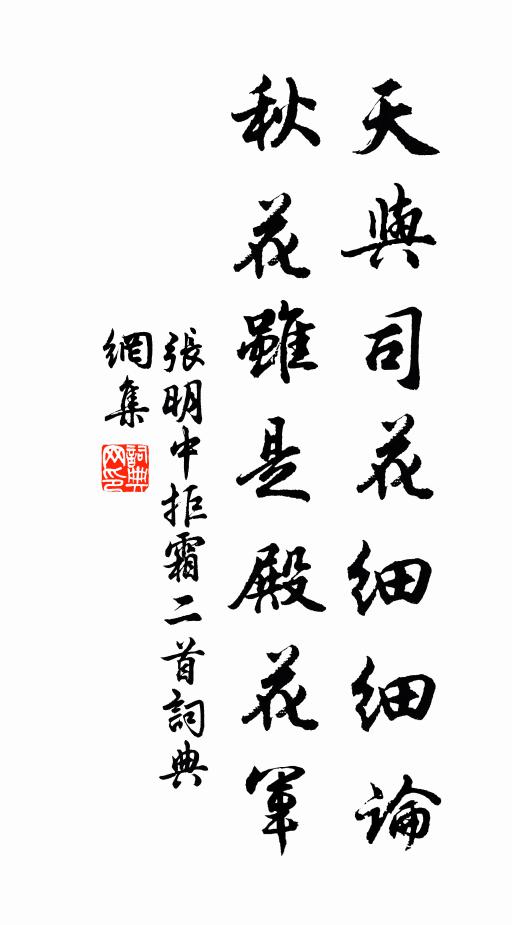 天與司花細細論
秋花雖是殿花軍
張明中拒霜二首詞典
網集
詞典
网印